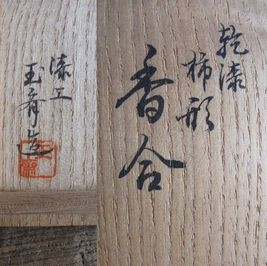 乾漆
柿形
香合
漆工
玉斉造